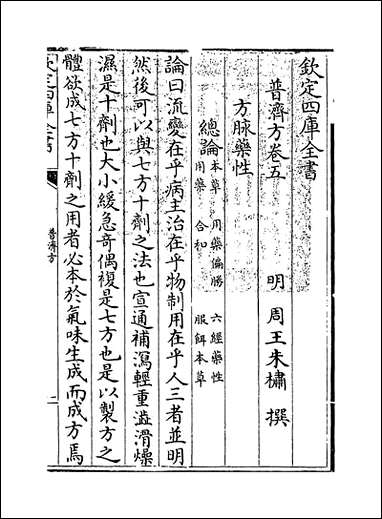 欽定四庫全書
普濟方卷五
明 周王朱橚 撰
方脉藥性
總論本草 用藥偏勝 六經藥性
用藥 合和 服餌本草
論曰流變在乎病主治在乎物制用在乎人三者並明
然後可以與七方十劑之法也宣通補瀉輕重澁滑燥
濕是十劑也大小緩急竒偶複是七方也是以製方之
體欲成七方十劑之用者必本於氣味生成而成方焉
欽定四庫全書
普濟方
一